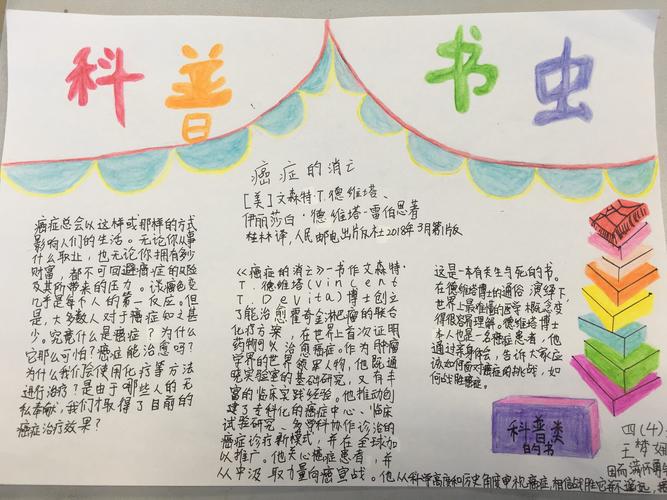 科普书虫
癌症的消亡
[美]文森特·T.德维塔、
伊丽莎白·德维塔-雷伯恩著
桂林译,人民邮电出版社2018年3月第1版
癌症总会以这样或那样的方式
影响人们的生活。无论你从事
什么取业,也无论你拥有多少
财富,都不可回避癌症的风险
及其所带来的压力。谈癌色变
几乎是每个人的第一反应。但
是,大多数人对于癌症知之甚
少。究竟什么是癌症?为什么
它那么可怕?癌症能治愈吗?
为什么我们会使用化疗等方法
进行治疗?是由于哪些人的无
私奉献,我们才取得了目前的
癌症治疗效果?
《癌症的消亡》一书作文森特·
T.德维塔(Vincent
T.DeVita)博士创立
了能治愈霍奇金淋巴瘤的联合
化疗方案,在世界上首次证明
药物可以治愈癌症。作为肿瘤
学界的世界领军人物,他既通
晓实验室的基础研究,又有丰
富的临床实践经验,他推动创
建了专科化的癌症中心、临床
试验研究、多学科协作诊治的
癌症诊疗新模式,并在全球加
以推广。他关心癌症患者,并
从中汲取力量向癌宣战。他从科学高度和历史角度审视癌症,相信战胜它并不遥远,
这是一本有关生与死的书。
在德维塔博士的通俗演绎下,
世界上最难懂的医学概念变
得很容易理解。德维塔博士
本人也是一名癌症患者,他
通过亲身体会,告诉大家应
该如何面对癌症的挑战,如
何战胜癌症。
科普类
的书
四(4)
王梦
因而满怀勇气